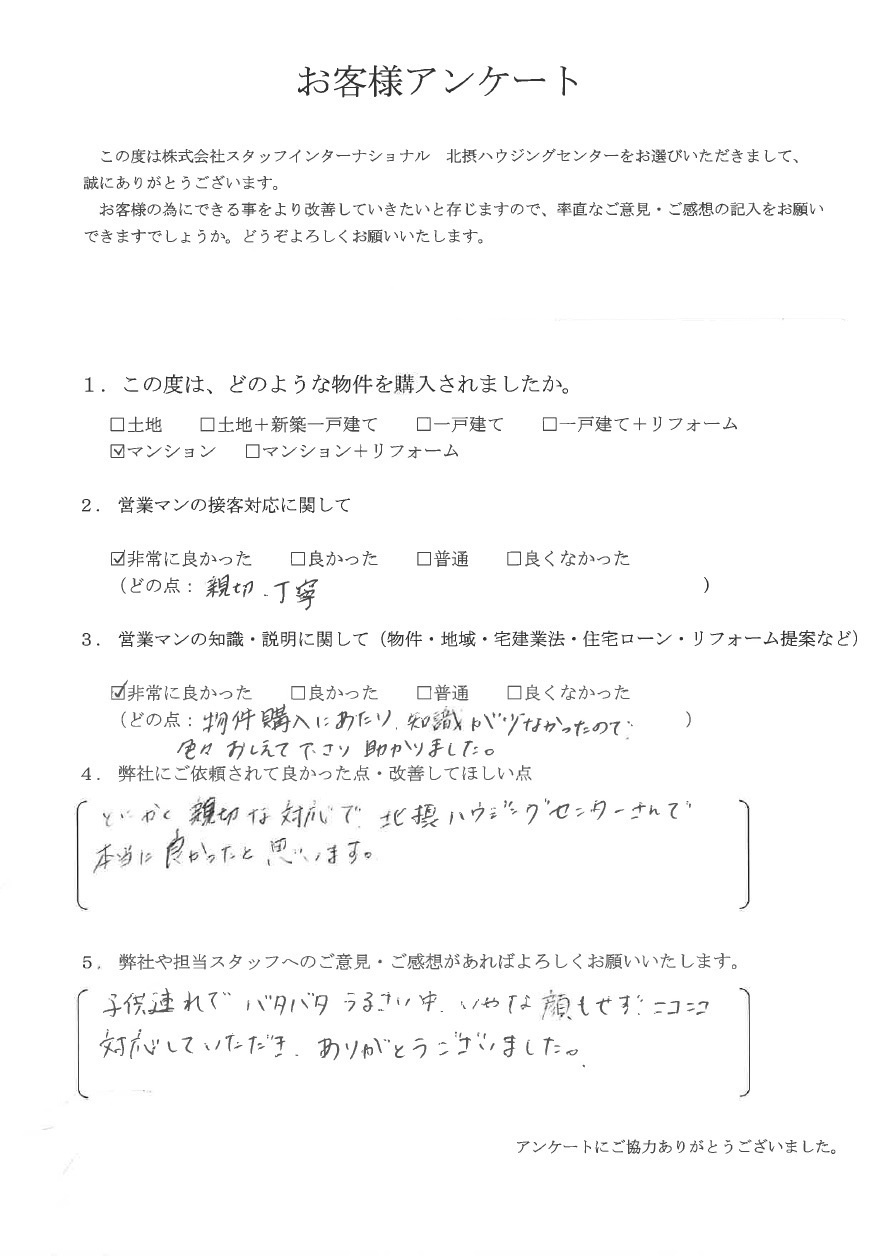 お客様アンケート
この度は株式会社スタッフインターナショナル　北摂ハウジングセンターをお選びいただきまして、
誠にありがとうございます。
お客様の為にできる事をより改善していきたいと存じますので、率直なご意見・ご感想の記入をお願い
できますでしょうか。どうぞよろしくお願いいたします。
１．この度は、どのような物件を購入されましたか。
□土地　□土地＋新築一戸建て　□一戸建て　□一戸建て＋リフォーム
☑マンション　□マンション＋リフォーム
２．営業マンの接客対応に関して
☑非常に良かった　□良かった　□普通　□良くなかった
（どの点：親切、丁寧）
３．営業マンの知識・説明に関して（物件・地域・宅建業法・住宅ローン・リフォーム提案など）
☑非常に良かった　□良かった　□普通　□良くなかった
（どの点：物件購入にあたり、知識が少なかったので、）
色々おしえて下さり助かりました。
４．弊社にご依頼されて良かった点・改善してほしい点
とにかく親切な対応で、北摂ハウジングセンターさんで
本当に良かったと思います。
５．弊社や担当スタッフへのご意見・ご感想があればよろしくお願いいたします。
子供連れでバタバタうるさい中、いやな顔もせず、ニコニコ
対応していただき、ありがとうございました。
アンケートにご協力ありがとうございました。